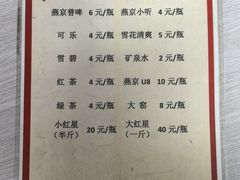 燕京普啤 6 元/瓶 燕京小听 4 元/瓶
可 乐 4 元/瓶 雪花清爽 5 元/瓶
雪 碧 4 元/瓶 矿泉水 2 元/瓶
红 茶 4 元/瓶 燕京 U8 10 元/瓶
绿 茶 4 元/瓶 大 窑 8 元/瓶
小红星 20 元/瓶 大红星 40 元/瓶
(半斤) (一斤)